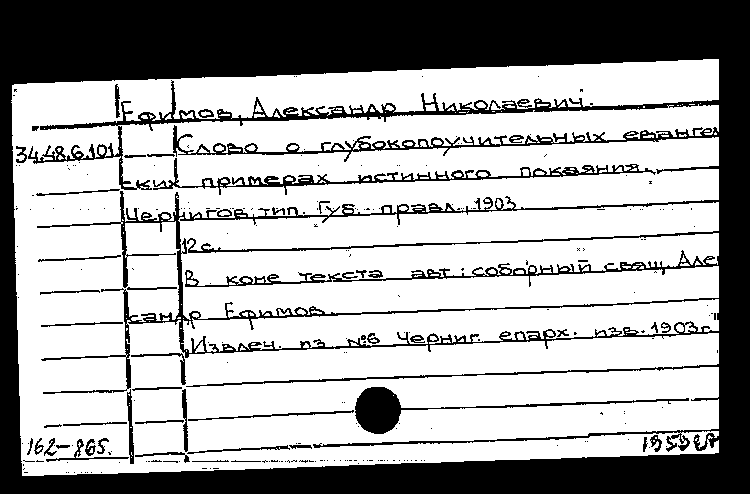 Ефимов, Александр Николаевич.
34.48.6.101. Слово о глубокопоучительных еванге
ских примерах истинного покаяния.
Чернигов, тип. Губ. правл., 1903.
12с.
В коне текста авт.: соборный свящ. Алек
сандр Ефимов.
"Извлеч. из №6 Черниг. епарх. изв. 1903г."
162-865.